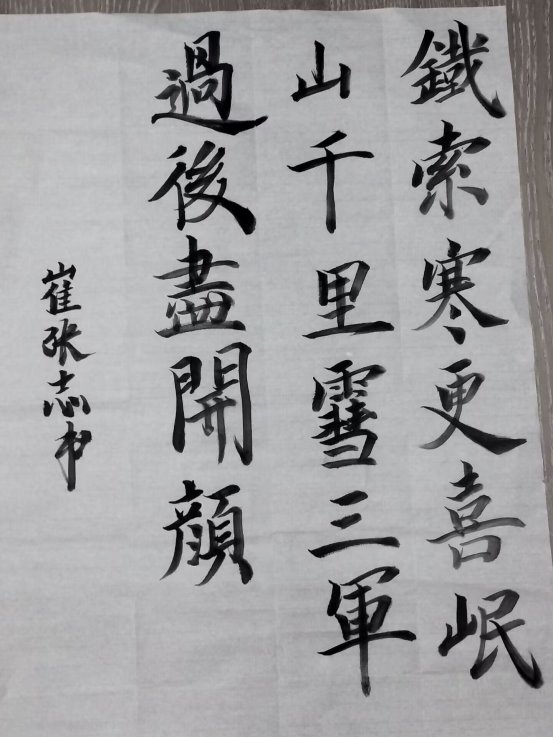 鐵索寒更喜岷
山千里雪三軍
過後盡開顔
崔张志书